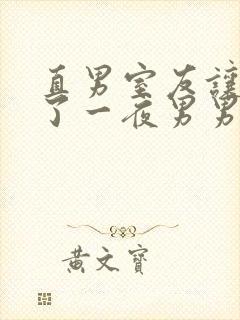 直男室友讓
了一夜男男
黃文寶